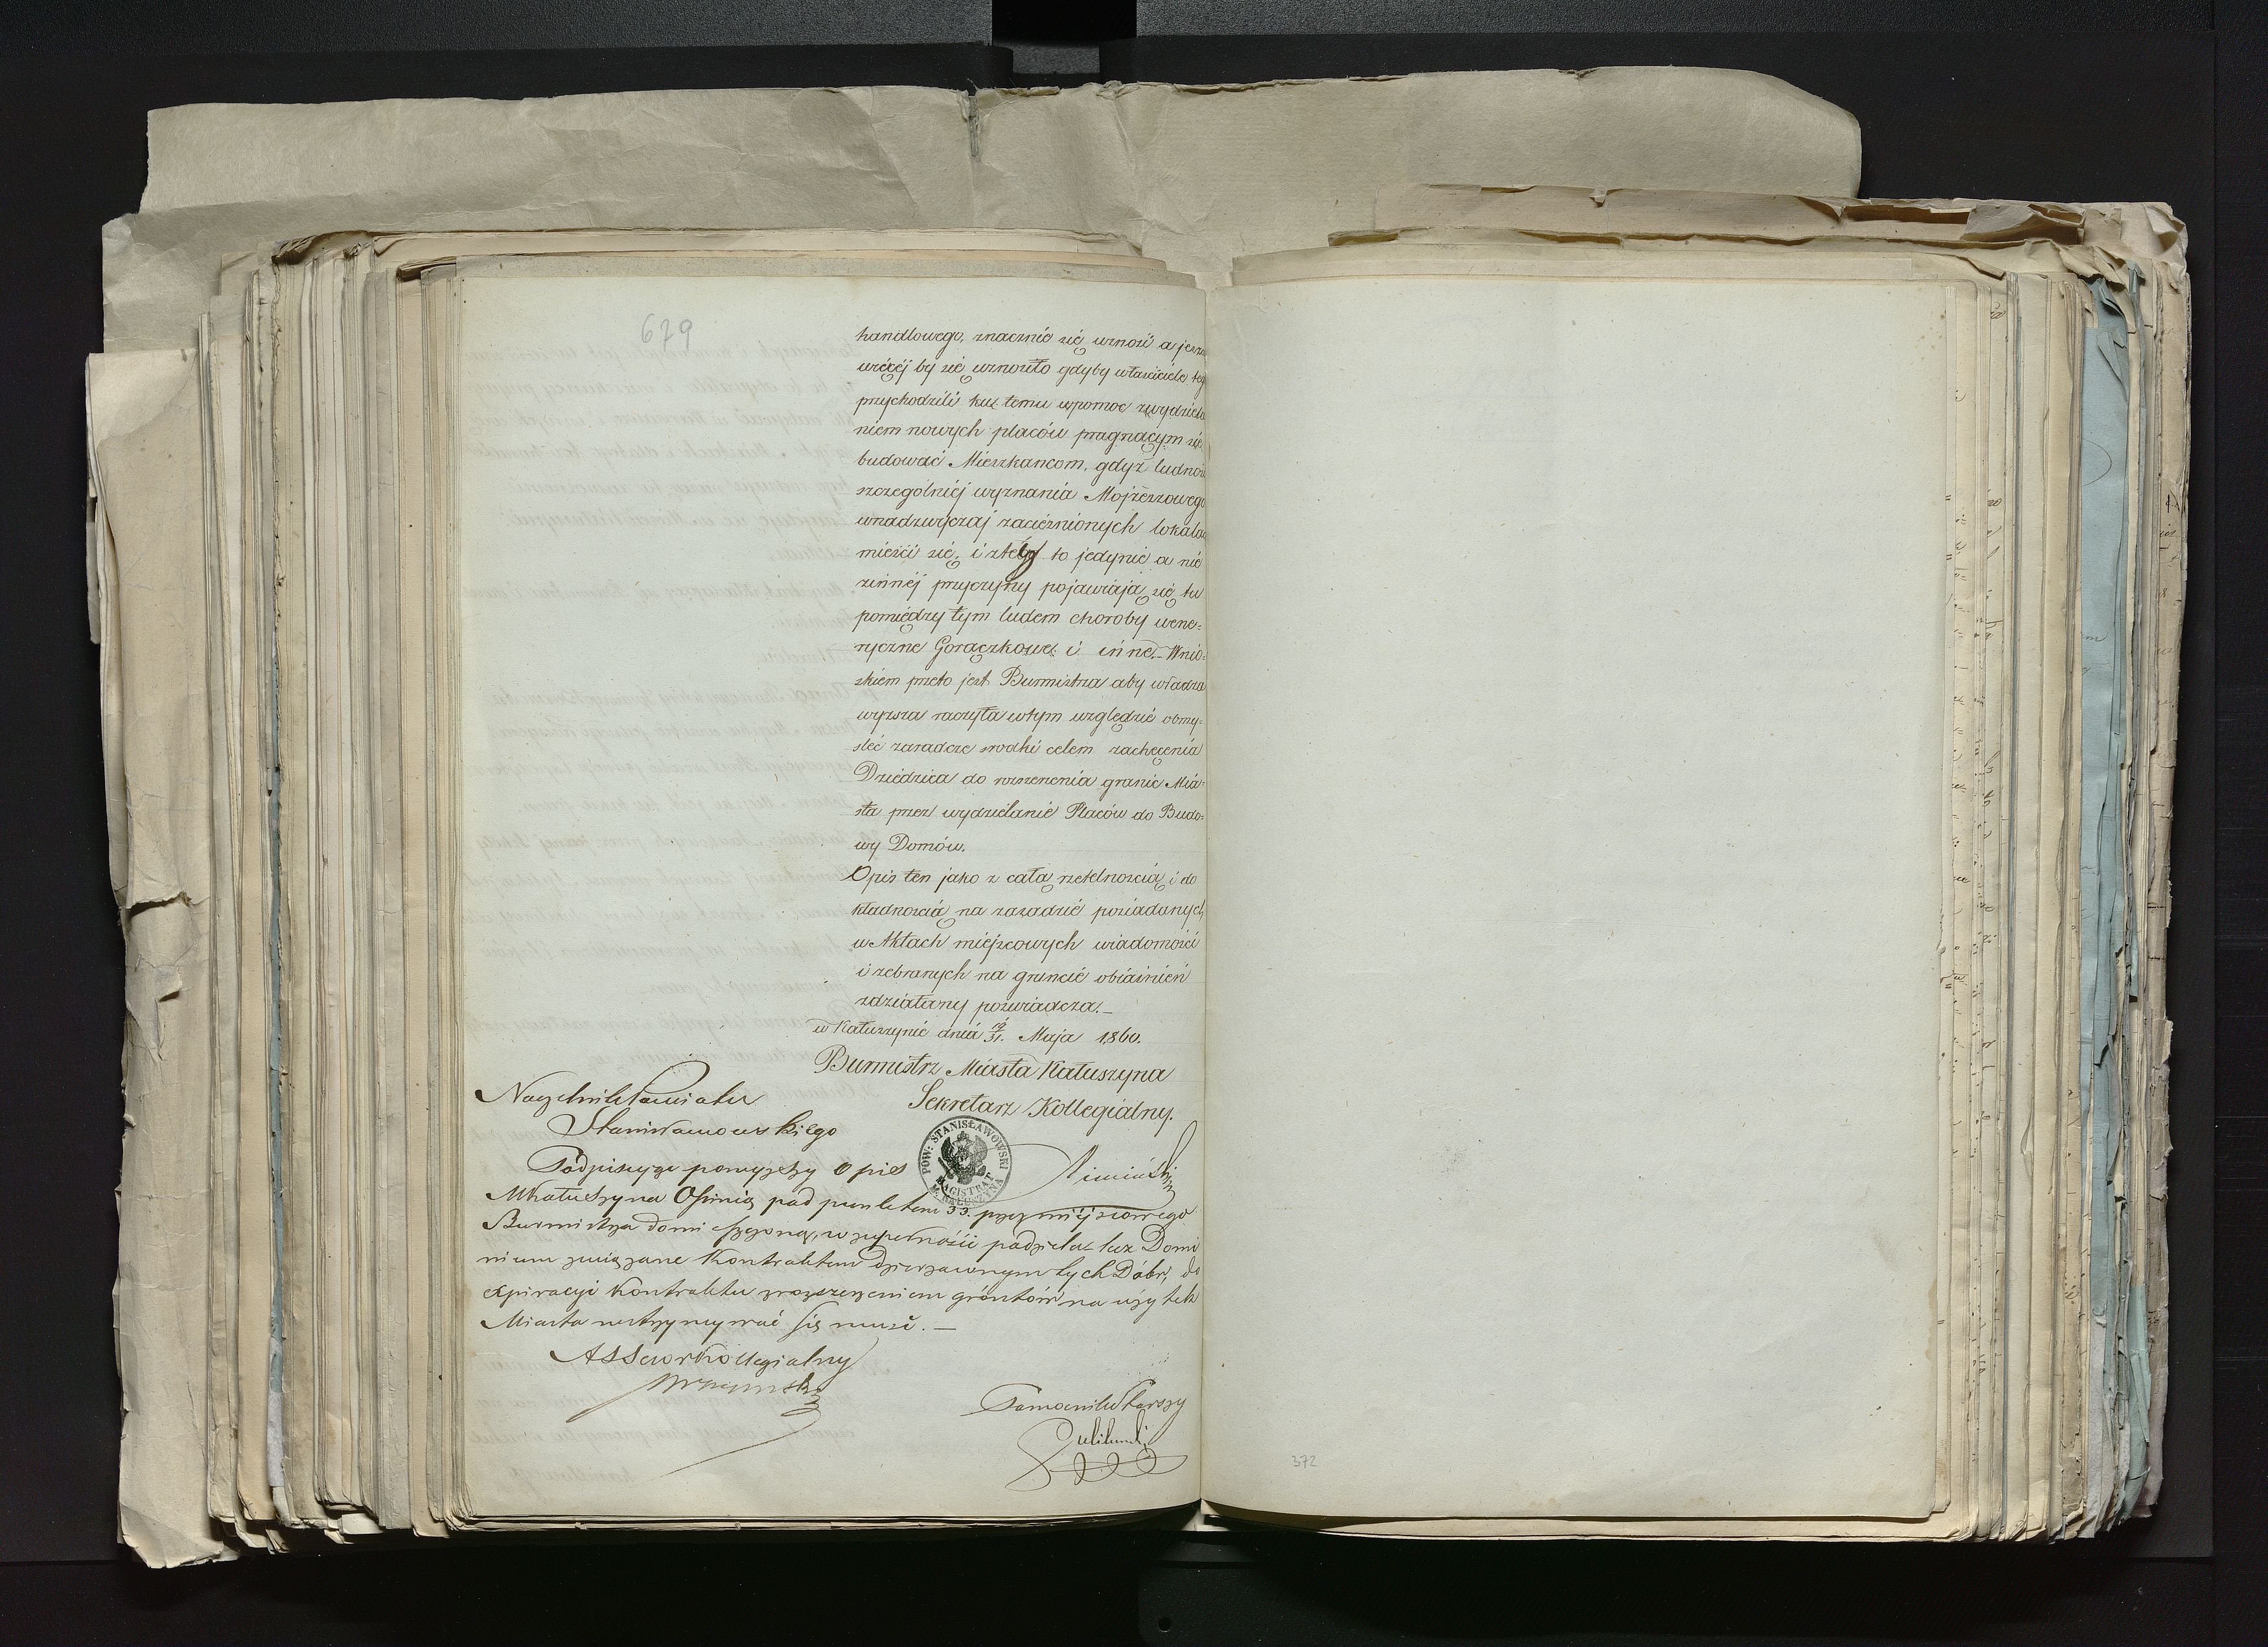 679
handlowego, znacznie się wznosi a jeszcze
więcéj by się wznosiło gdyby właściciele tego
przychodzili kuz temu wpomoc zwydziela
niem nowych placów pragnącym się
budować Mieszkancom, gdyż ludność
szczególniej wyznania Mojżeszowego
wnadzwyczaj zacieśnionych lokalach
mieści się, i ztego to jedynie a nie
zinnéj przyczyny pojawiają się tu
pomiędzy tym ludem choroby wene=
ryczne Gorączkowe i inne.- Wnio=
skiem przeto jest Burmistrza aby władza
wyższa raczyła wtym względzie obmy=
śleć zaradcze srodki celem zachęcenia
Dziedzica do rozszerzenia granic Mia=
sta przez wydzielanie Placów do Budo=
wy Domów.
Opis ten jako z całą rzetelnością i do
kładnością na zasadzie posiadanych
w Aktach miejscowych wiadomości
i zebranych na gruncie obiaśnień
zdziałany poswiadcza.-
w Kałuszynie dnia 19/31. Maja 1860.
Burmistrz Miasta Kałuszyna
Sekretarz Kollegialny.
POW: STANISŁAWOWSKI
MAGISTRAT
M. KAŁUSZYNA
Naczelnik Powiatu
Stanisławowskiego
Podpisując powyższy Opis
M Kałuszyna Opinią pod punktem 33. przez miejscowego
Burmistrza domieszczoną, w zupełności podziela lecz Domi
nium związane Kontraktem dzierzawnym tych Dóbr, do
expiracyi Kontraktu z rozszerzeniem gróntów na użytek
Miasta wstrzymywać się musi.-
Assessor Kollegialny
Pomocnik Starszy
372